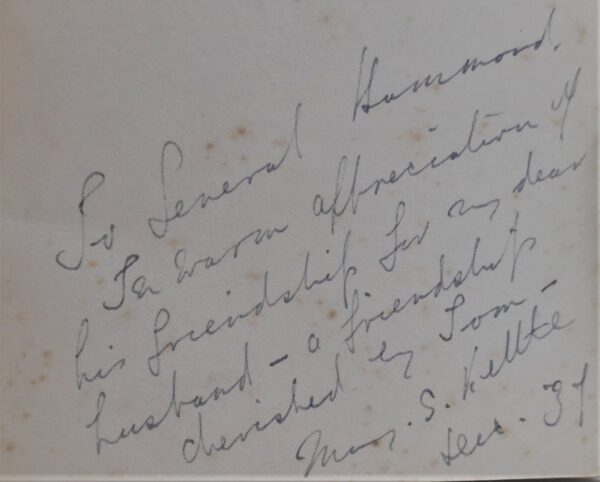 To General Hammond,
In warm appreciation of
his friendship for my dear
husband - a friendship
cherished by Tom -
Mary. S. Kettle
Dec. 37